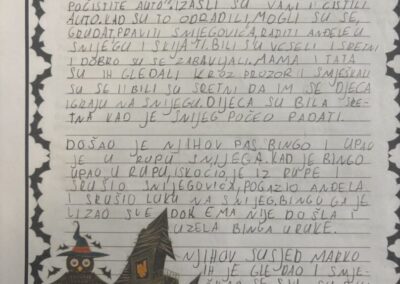 POČISTITE AUTO". IZAŠLI SU VANI I ČISTILI
AUTO. KAD SU TO ODRADILI, MOGLI SU SE,
GRUDAT, PRAVITI SNJEGOVIĆA, RADITI ANĐELE U
SNIJEGU I SKIJATI. BILI SU VESELI I SRETNI
I DOBRO SU SE ZABAVLJALI. MAMA I TATA
SU IH GLEDALI KROZ PROZOR I SMJEŠKALI
SU SE I BILI SU SRETNI DA IM SE DJECA
IGRAJU NA SNIJEGU. DIJECA SU BILA SRE-
TNA KAD JE SNIJEG POČEO PADATI.
DOŠAO JE NJIHOV PAS BINGO I UPAO
JE U RUPU SNIJEGA. KAD JE BINGO
UPAO U RUPU, ISKOČIO JE IZ RUPE I
SRUŠIO SNIJEGOVIĆA, POGAZIO ANĐELA
I SRUŠIO LUKU NA SNIJEG. BINGO GA JE
LIZAO SVE DOK EMA NIJE DOŠLA I
UZELA BINGA U RUKE.
NJIHOV SUSJED MARKO
IH JE GLEDAO I SMJE-